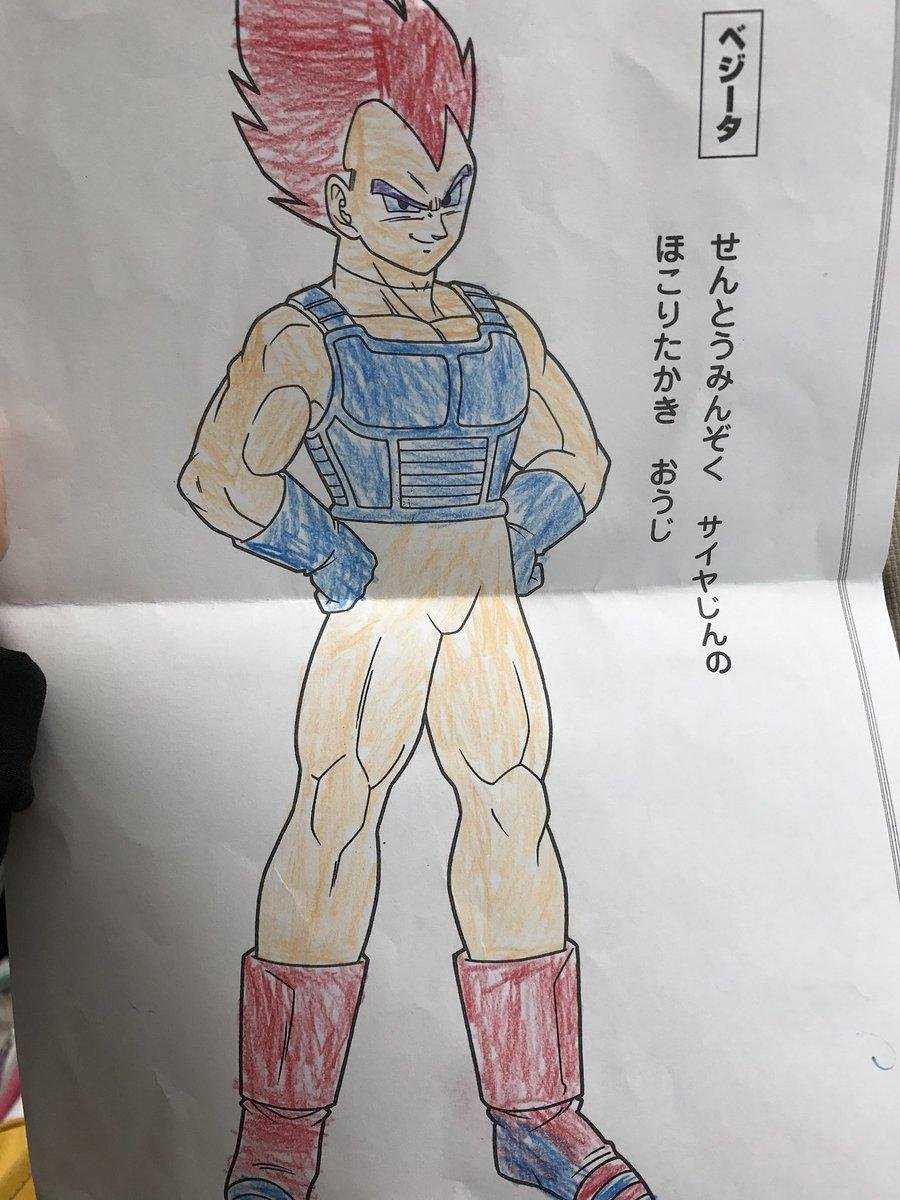 ベジータ
せんとうみんぞく　サイヤじんの
ほこりたかき　おうじ